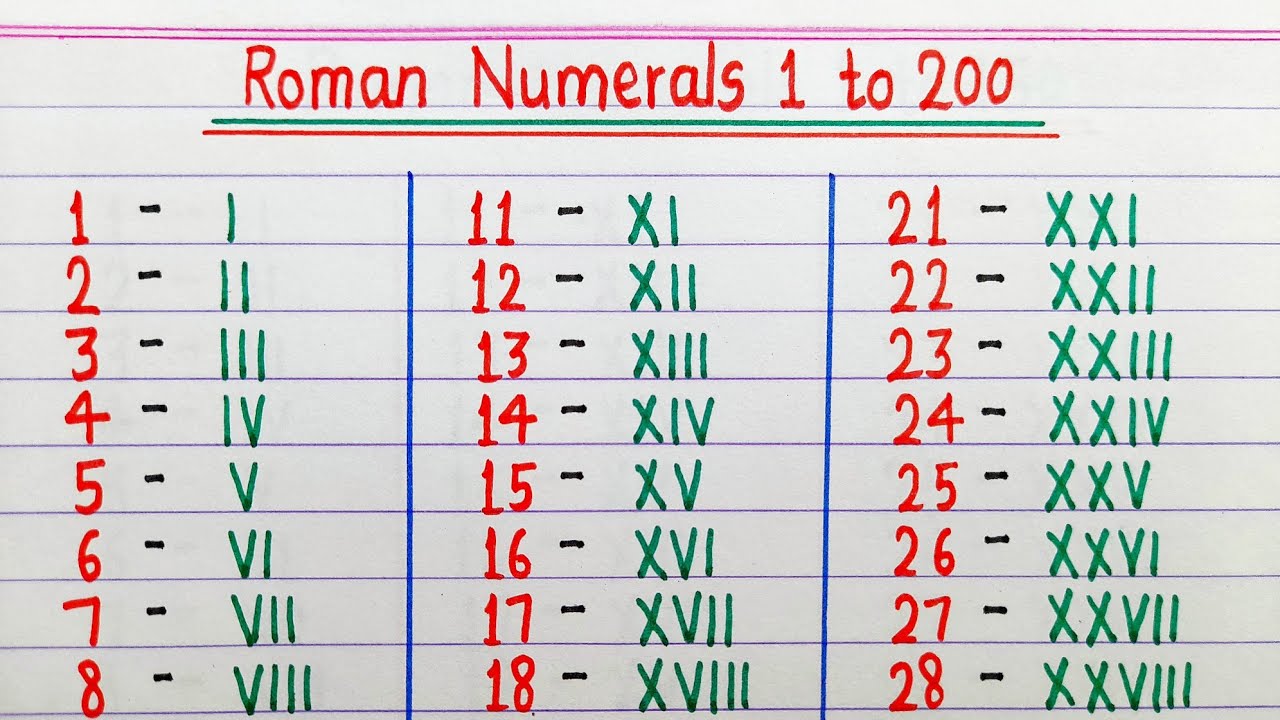 Roman Numerals 1 to 200
1 - I
2 - II
3 - III
4 - IV
5 - V
6 - VI
7 - VII
8 - VIII
11 - XI
12 - XII
13 - XIII
14 - XIV
15 - XV
16 - XVI
17 - XVII
18 - XVIII
21 - XXI
22 - XXII
23 - XXIII
24 - XXIV
25 - XXV
26 - XXVI
27 - XXVII
28 - XXVIII